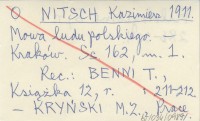 O NITSCH Kazimierz 1911.
Mowa ludu polskiego. —
Kraków. Ss 162, m. 1.
Rec.: BENNI T.,
Książka 12, r. : 211-212
— KRYŃSKI M.Z. Prace